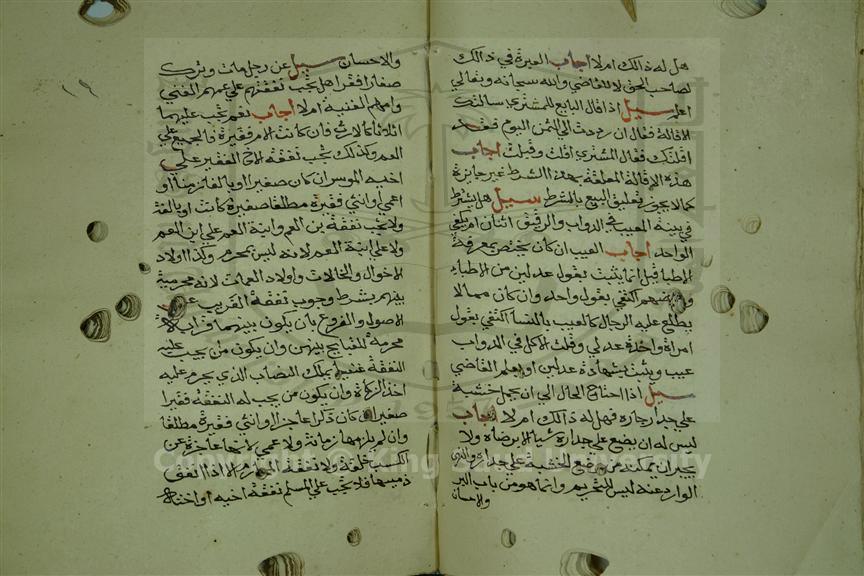 هل له ذالك ام لا اجاب العبرة في ذالك
لصاحب الحق لا للقاضي والله سبحانه وتعالى
اعلم سيل اذا قال البايع للمشتري سالتك
الاقالة فقال ان رددت الي الثمن اليوم فقد
اقلتك فقال المشتري اقلت وقبلت اجاب
هذه الاقالة المعلقة بهذا الشرط غير جايزة
كما لا يجوز تعليق البيع بالشرط سيل هل يشترط
في بينة العيب في الدواب والرقيق اثنان ام يكفي
الواحد اجاب العيب ان كان يختص بمعرفة
الاطبا قيل انما يثبت بقول عدلين من الاطباء
وبعضهم اكتفى بقول واحد وان كان مما لا
يطلع عليه الرجال كالعيب بالنسا اكتفي بقول
امراة واحدة عدل وقلت الاكل في الدواب
عيب ويثبت بشهادة عدلين او بعلم القاضي
سيل اذا احتاج الحال الى ان يحمل خشبة
على جدار جاره فهل له ذالك ام لا اجاب
ليس له ان يضع على جداره شيا الا برضاه ولا
يجبر ان يمكنه من وضع الخشبة على جداره والنهي
الوارد عنه ليس للتحريم وانما هو من باب البر
والاحسان
والاحسان سيل عن رجل مات وترك
صغارا فقرا هل تجب نفقتهم على عمهم الغني
وامهم الغنية ام لا اجاب نعم تجب عليهما
اثلاثا كالارث وان كانت الام فقيرة فالجميع على
العم وكذلك تجب نفقة الاخ الفقير على
اخيه الموسر ان كان صغيرا او بالغا زمنا او
اعمى او انثى فقيرة مطلقا صغيرة كانت او بالغة
ولا تجب نفقة بن العم وابنة العم على ابن العم
ولا على ابنة العم لانه ليس بمحرم وكذا اولاد
الاخوال والخالات واولاد العمات لانه لا محرمية
بينهم بشرط وجوب نفقة القريب على
الاصول والفروع بان يكون بينهما قرابة
محرمة للنكاح بينهن وان يكون من يجب عليه
النفقة غنيا يملك النصاب الذي يحرم عليه
اخذ الزكاة وان يكون من يجب له النفقة فقيرا
صغيرا ان كان ذكرا عاجزا او انثى فقيرة مطلقا
وان لم يكن بها زمانة ولا عمى لانها عاجزة عن
الكسب خلقة ولا نفقة
ذميسها فلا تجب على المسلم نفقة اخيه او اخته